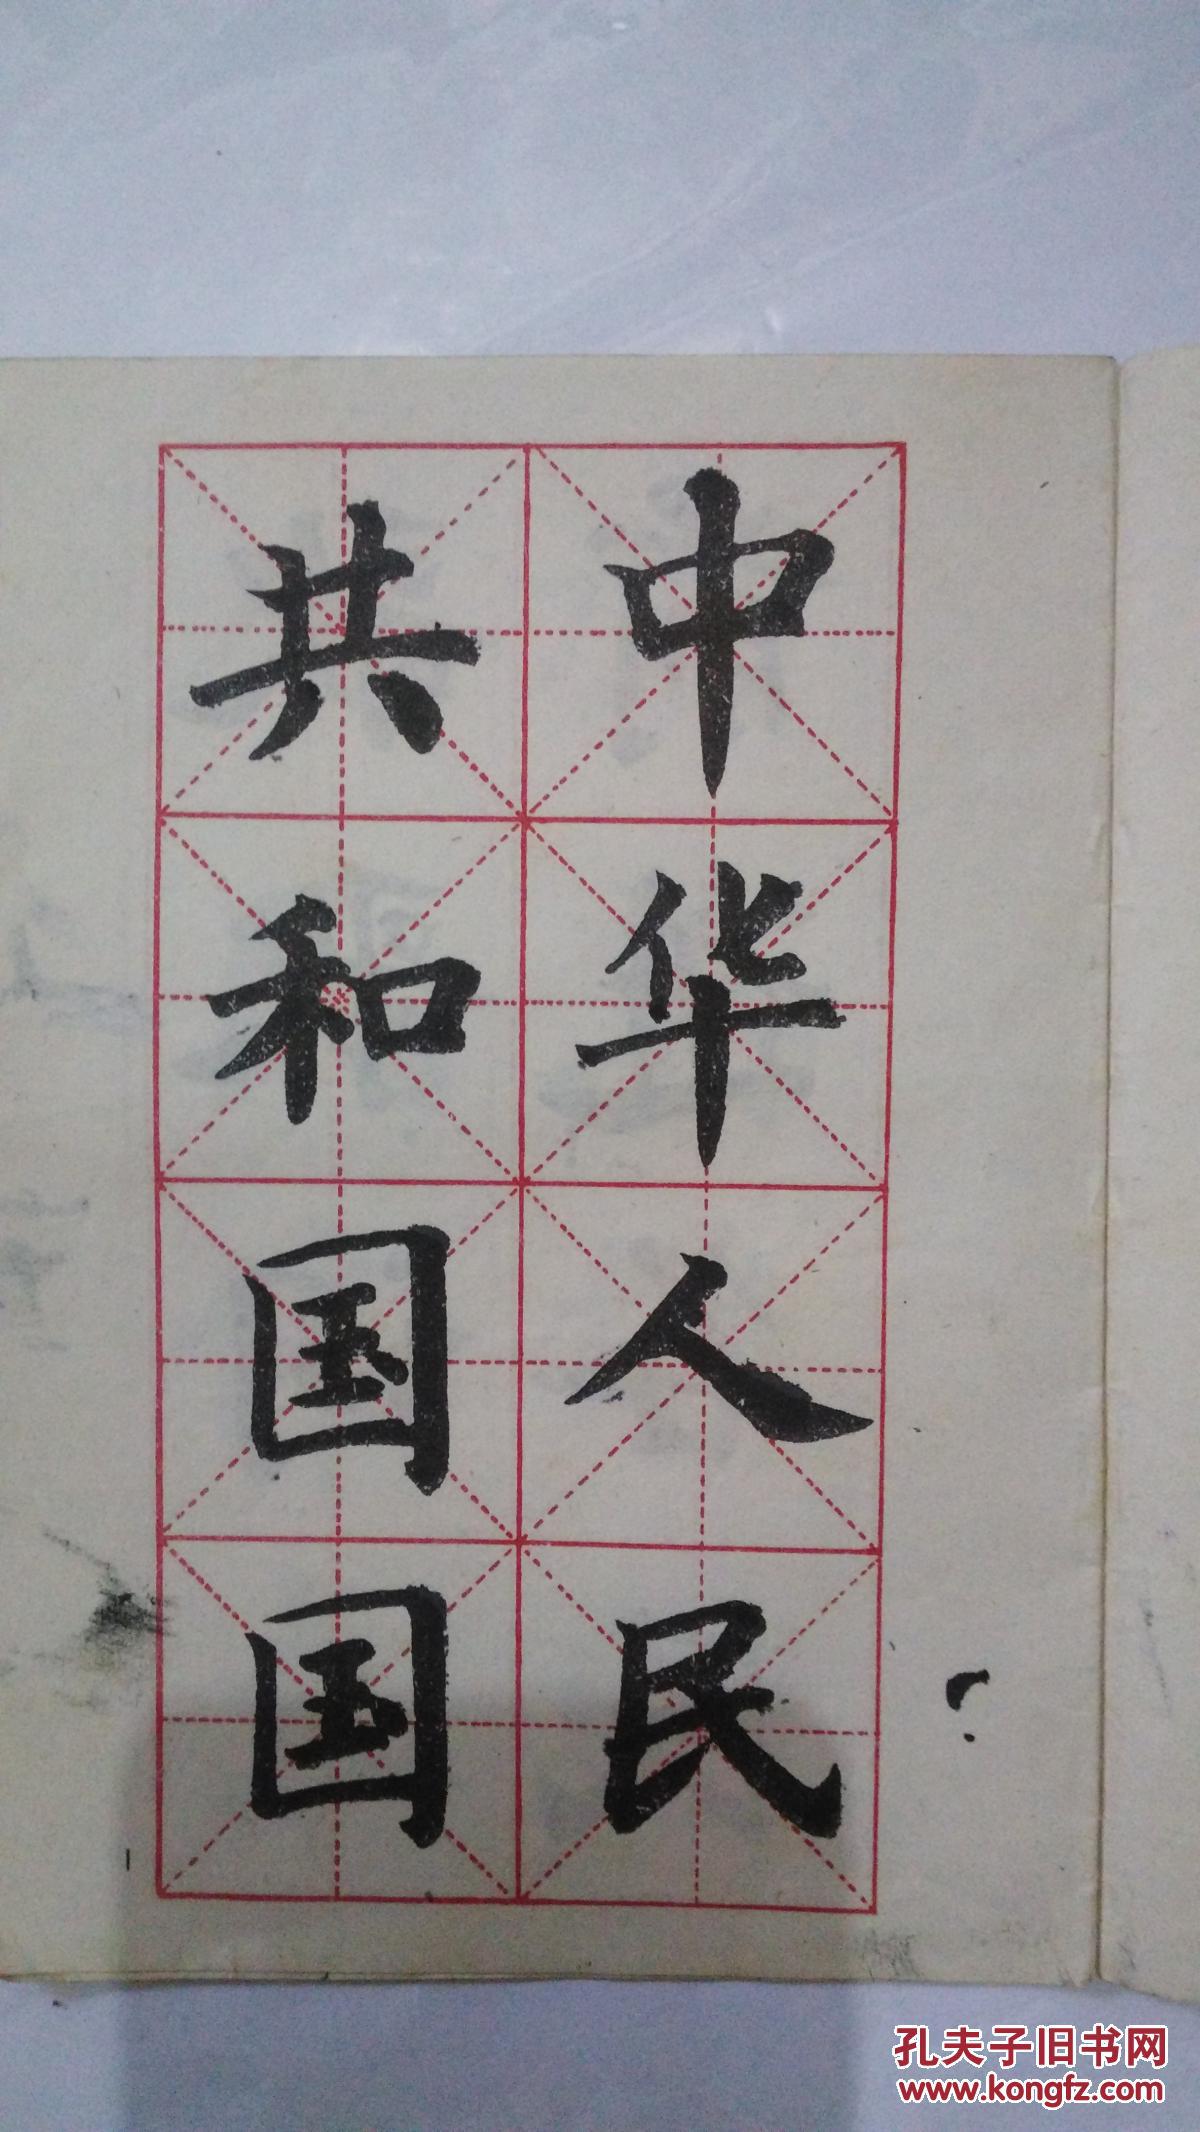 中华人民
共和国国
1
孔夫子旧书网
www.kongfz.com